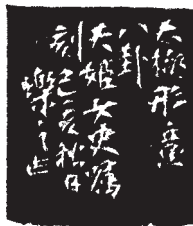 太極形意
八卦
姬女史嘱
刻己亥秋日
樂